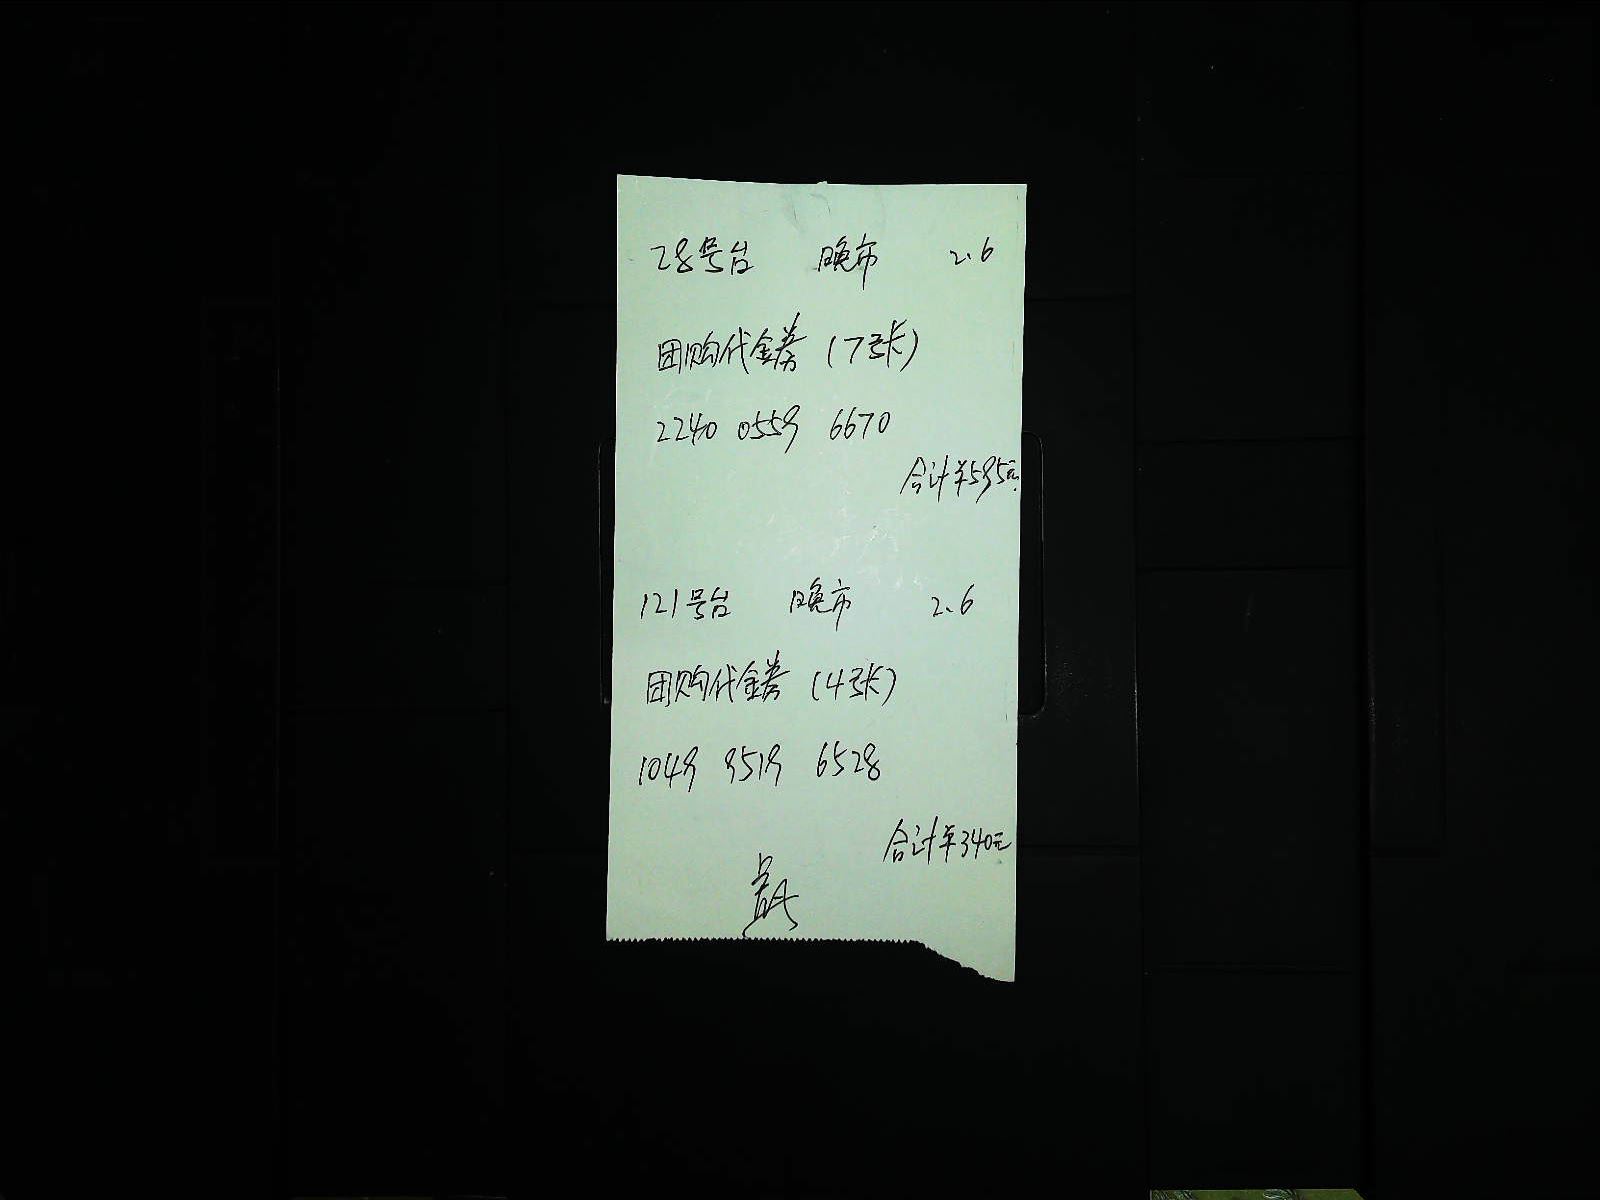 28号台 晚市 2.6
团购代金券(7张)
2240 0559 6670
合计¥595元
121号台 晚市 2.6
团购代金券(4张)
1049 9519 6528
合计¥340元